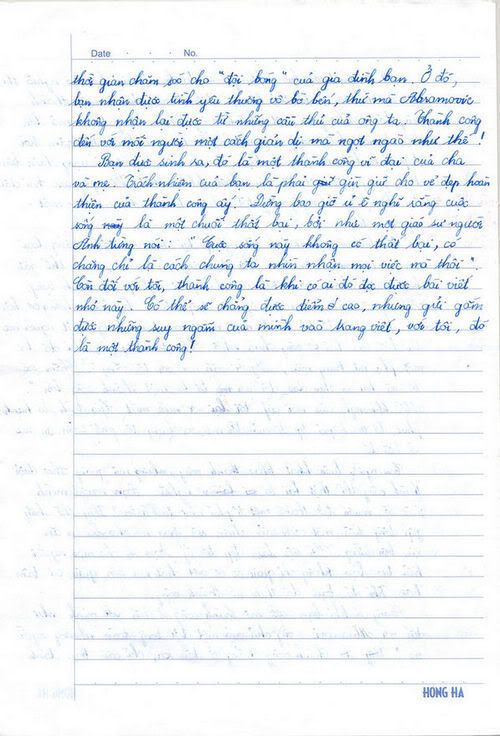 Date . . . No.
thời gian chăm sóc cho "đội bóng" của gia đình bạn. Ở đó,
bạn nhận được tình yêu thương vô bờ bến, thứ mà Abramovic
không nhận lại được từ những cầu thủ của ông ta. Thành công
đến với mỗi người một cách giản dị mà ngọt ngào như thế!
Bạn được sinh ra, đó là một thành công vĩ đại của cha
và mẹ. Trách nhiệm của bạn là phải giữ gìn cho vẻ đẹp hoàn
thiện của thành công ấy. Đừng bao giờ ủ ê nghĩ rằng cuộc
sống này là một chuỗi thất bại, bởi như một giáo sư người
Anh từng nói: "Cuộc sống này không có thất bại, có
chăng chỉ là cách chúng ta nhìn nhận mọi việc mà thôi".
Còn đối với tôi, thành công là khi có ai đó đọc được bài viết
nhỏ này. Có thể sẽ chẳng được điểm cao, nhưng gửi gắm
được những suy ngẫm của mình vào trang viết, với tôi, đó
là một thành công!
HONG HA